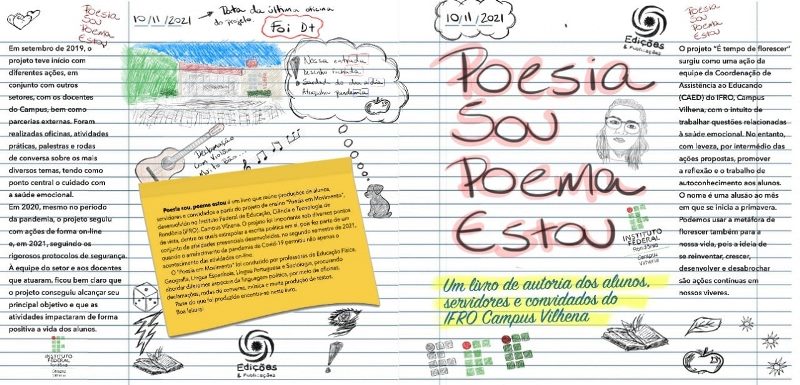 Em setembro de 2019, o
projeto teve início com
diferentes ações, em
conjunto com outros
setores, com os docentes
do Campus, bem como
parcerias externas. Foram
realizadas oficinas, atividades
práticas, palestras e rodas
de conversa sobre os mais
diversos temas, tendo como
ponto central o cuidado com
a saúde emocional.
Em 2020, mesmo no período
da pandemia, o projeto seguiu
com ações de forma on-line
e, em 2021, seguindo os
rigorosos protocolos de segurança.
À equipe do setor e aos docentes
que atuaram, ficou bem claro que
o projeto conseguiu alcançar seu
principal objetivo e que as
atividades impactaram de forma
positiva a vida dos alunos.
INSTITUTO
FEDERAL
POESIA
SOU
POEMA
ESTOU
10/11/2021
Data da última oficina
do projeto.
Foi D+
Nossa entrada
Saudade do dia a dia
Declamação
com violão
muito boa...
Poesia sou, poema estou é um livro que reúne produções de alunos,
servidores e convidados a partir do projeto de ensino "Poesia em Movimento",
desenvolvido no Instituto Federal de Educação, Ciência e Tecnologia de
Rondônia (IFRO), Campus Vilhena. O projeto foi importante sob diversos pontos
de vista, dentre os quais extrapolar a escrita poética em si, pois foi parte de um
conjunto de atividades presenciais desenvolvidas, no segundo semestre de 2021,
quando o arrefecimento da pandemia da Covid-19 permitiu não apenas o
acontecimento das atividades on-line.
O "Poesia em Movimento" foi conduzido por professores da Educação Física,
Geografia, Língua Espanhola, Língua Portuguesa e Sociologia, procurando
abordar diferentes aspectos da linguagem poética, por meio de oficinas,
declamações, rodas de conversa, música e muita produção de textos.
Parte do que foi produzido encontra-se neste livro.
Boa leitura!
Edições
& Publicações
10/11/2021
Edições
& Publicações
Poesia
Sou
Poema
Estou
INSTITUTO
FEDERAL
Rondônia
Campus
Vilhena
Um livro de autoria dos alunos,
servidores e convidados do
IFRO Campus Vilhena
23
POESIA
SOU
POEMA
ESTOU
O projeto "É tempo de florescer"
surgiu como uma ação da
equipe da Coordenação de
Assistência ao Educando
(CAED) do IFRO, Campus
Vilhena, com o intuito de
trabalhar questões relacionadas
à saúde emocional. No entanto,
com leveza, por intermédio das
ações propostas, promover
a reflexão e o trabalho de
autoconhecimento aos alunos.
O nome é uma alusão ao mês
em que se inicia a primavera.
Podemos usar a metáfora de
florescer também para a
nossa vida, pois a ideia de
se reinventar, crescer,
desenvolver e desabrochar
são ações contínuas em
nossos viveres.